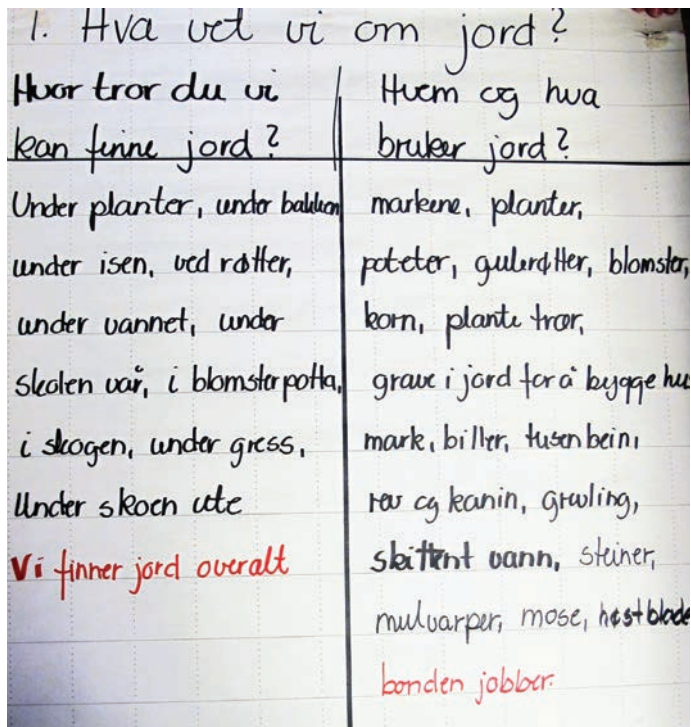 1. Hva vet vi om jord?
Hvor tror du vi
kan finne jord?
Under planter, under bakken
under isen, ved røtter,
under vannet, under
skolen vår, i blomsterpotta,
i skogen, under gress,
Under skoen ute
Vi finner jord overalt
Hvem og hva
bruker jord?
markene, planter,
poteter, gulerøtter, blomster,
korn, plante trær,
grave i jord for å bygge hus
mark, biller, tusenbein,
rev og kanin, grevling,
skittent vann, steiner,
mulvarper, mose, høstblade
bonden jobber.